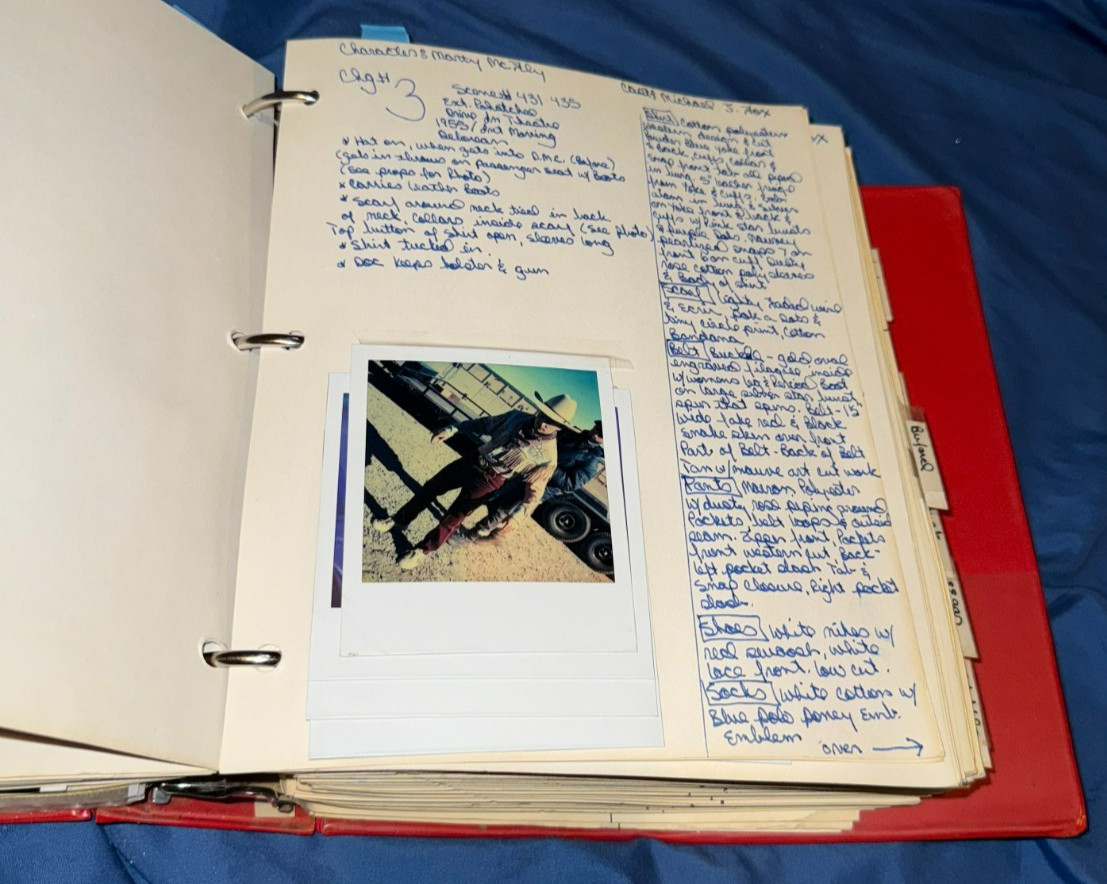 Character: Marty McFly
Cast: Michael J. Fox
Chg# 3
Scene# 431-435
Ext. Pohatchee
Drive In Theatre
1955/Int Moving
Delorean
* Hat on, when gets into D.M.C. (Before)
(gets in throws on passenger seat w/ Boots
(See props for Photo)
* Carries leather Boots
* Scarf around neck tied in back
of neck, collars inside scarf (See photo)
Top button of shirt open, sleeves long
* Shirt tucked in.
* Doc keeps holster & gun
Shirt Cotton polyester
western design & cut
Blue yoke front
& back, cuffs, collar &
snap front tab all piped
in 5"
from yoke & cuffs.
atom in & silver
on yoke front & back &
cuffs w/ Pink star
& purple dots.
pearlized snaps 7 on
front 6 on cuff. Dusty
rose cotton poly sleeves
& Body of shirt
Scarf lightly Faded
& Ecru, Polk a dots &
tiny circle print, Cotton
Bandana
Belt Buckle - gold oval
engraved filagree inside
w/womens leg & Boot
on large silver star,
spur that spins. Belt - 1.5"
wide fake red & Black
snake skin over front
Part of Belt - Back of Belt
Tan w/mauve art cut work
Pants Maroon Polyester
w/dusty rose piping around
Pockets, belt loops & outside
seam. Zipper front. Pockets
front western cut. Back -
left pocket slash Tab &
snap closure, Right pocket
slash.
Shoes White nikes w/
red swoosh, white
lace front. low cut.
Socks White cotton w/
Blue polo poney Emb.
Emblem
over →
Buford